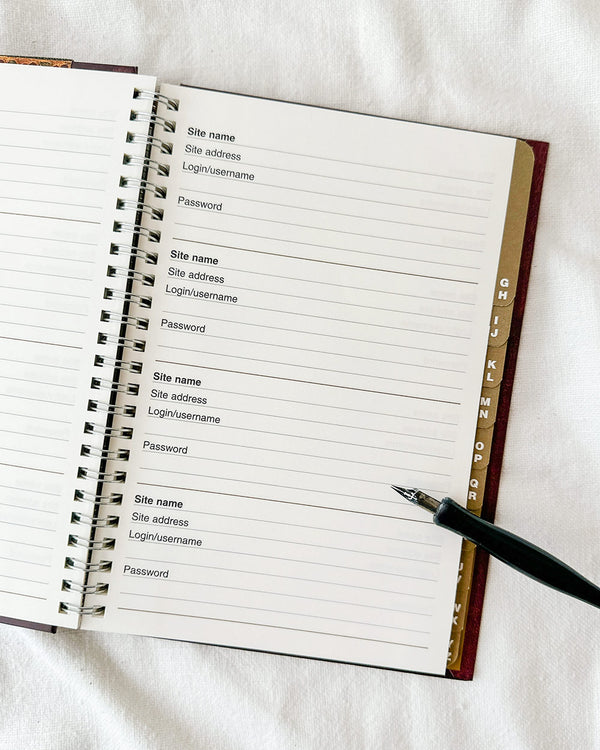 Site name
Site address
Login/username
Password
Site name
Site address
Login/username
Password
Site name
Site address
Login/username
Password
Site name
Site address
Login/username
Password
G
H
I
J
K
L
M
N
O
P
Q
R